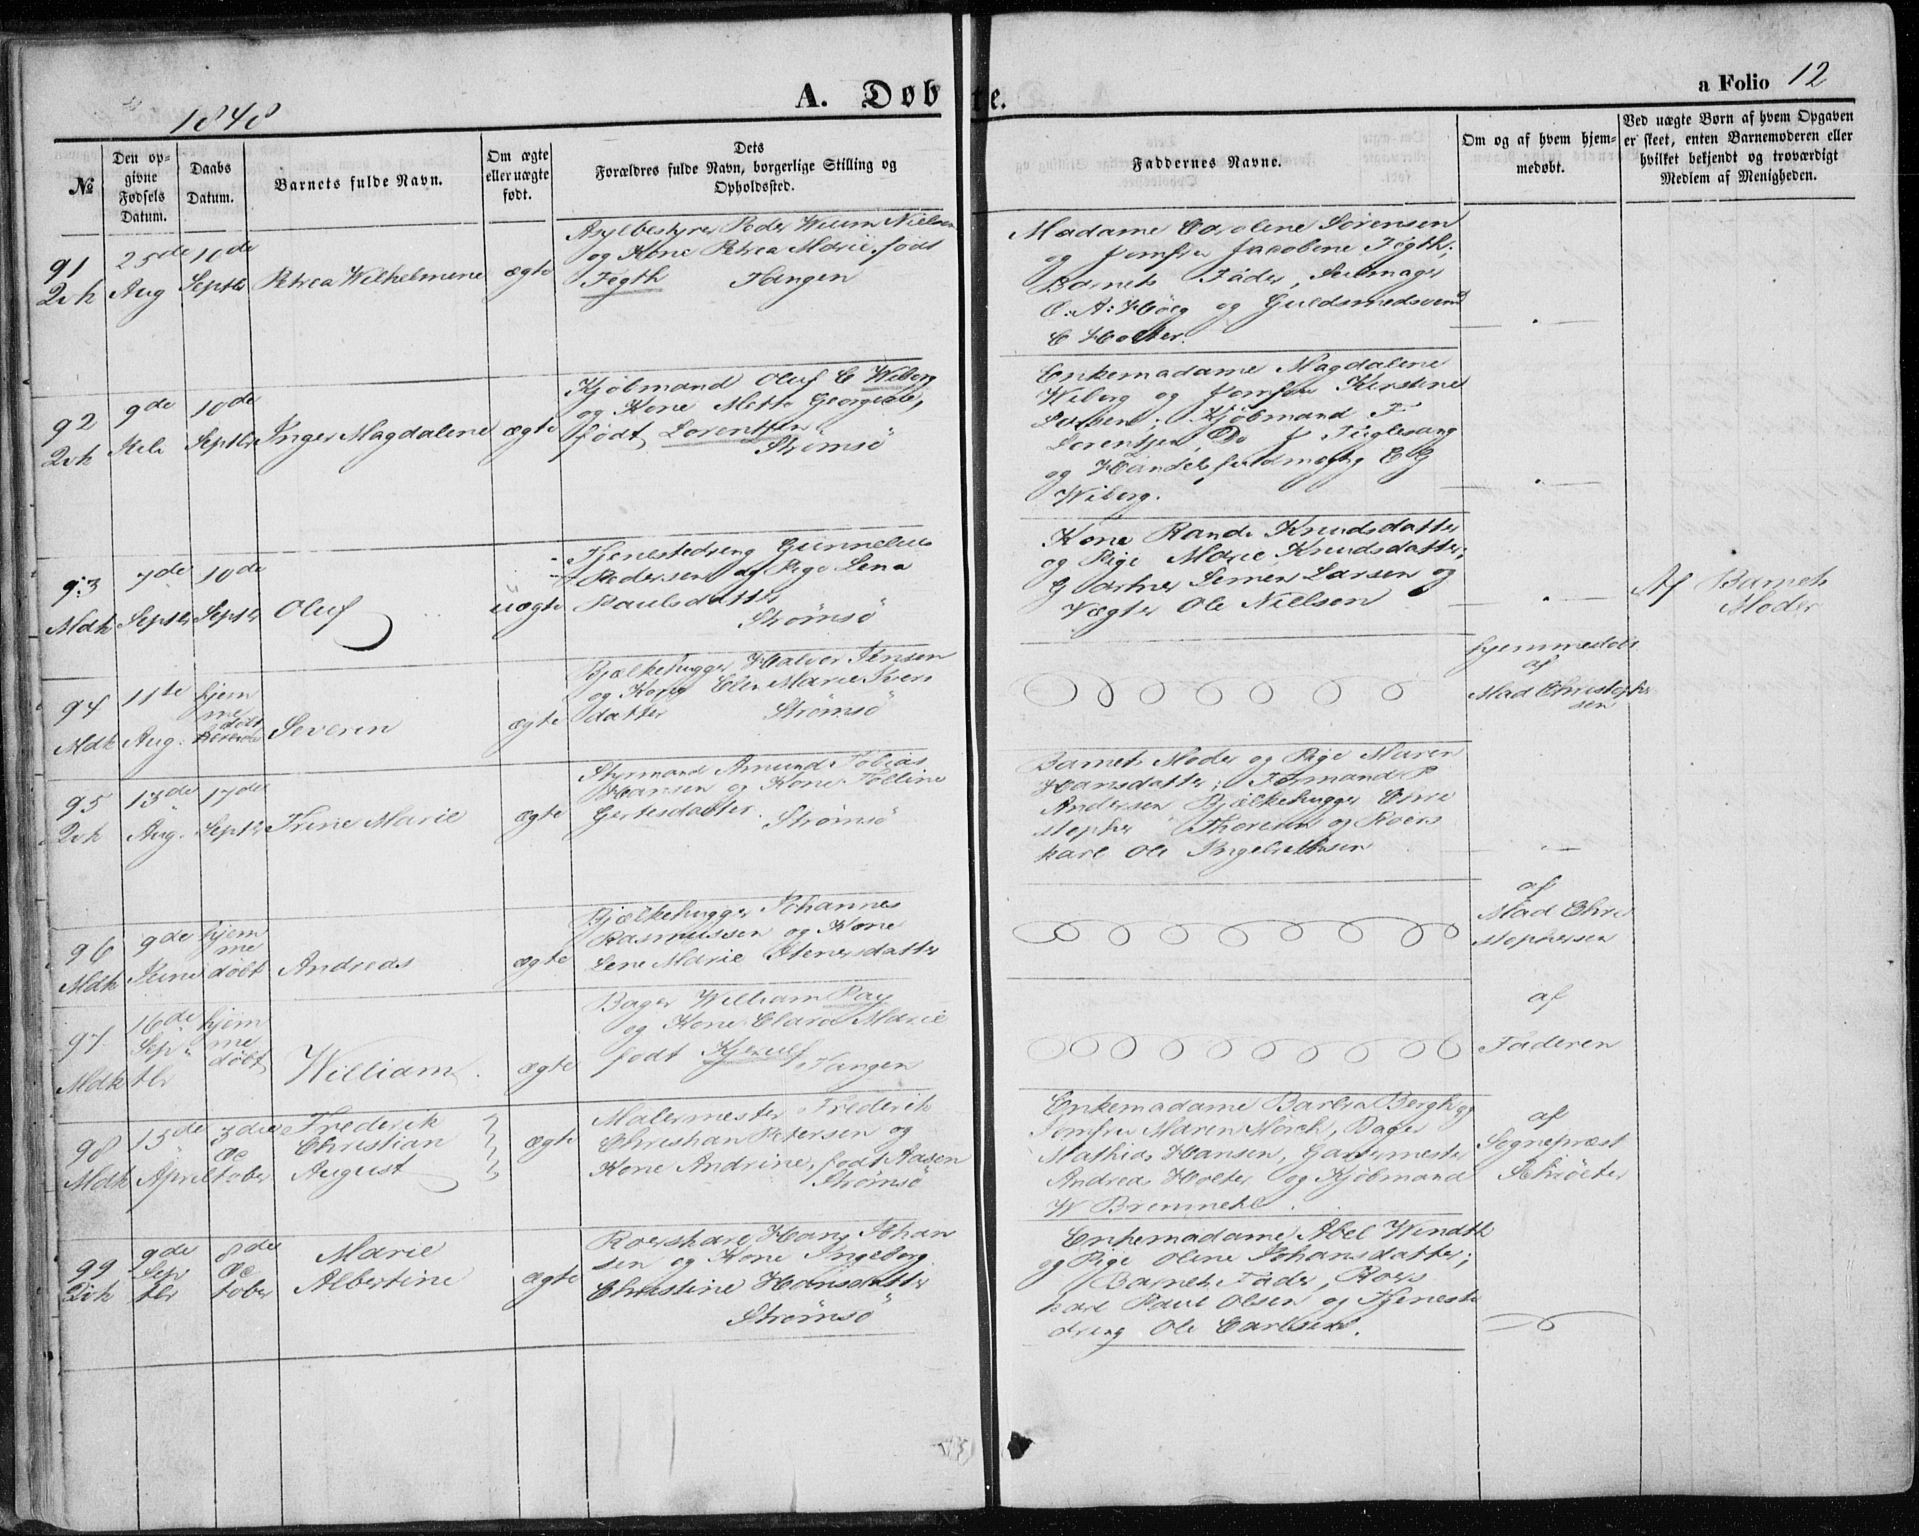 1848
A. Døbte.
a Folio 12
№
Den opgivne Fødsels Datum.
Daabs Datum.
Barnets fulde Navn.
Om ægte eller uægte født.
Dets Forældres fulde Navn, borgerlige Stilling og Opholdssted.
Faddernes Navne.
Om og af hvem hjemmedøbt.
Ved uægte Børn af hvem Opgaven er skeet, enten Barnemoderen eller hvilket bekjendt og troværdigt Medlem af Menigheden.
91
25de Aug
10de Septbr
Petrea Wilhelmine
ægte
Asylbestyrer Peder Wium Nielsen
og Kone Petrea Marie født
Fegth Tangen
Madame Caroline Sørensen
og Jomfru Jacobine Fegth;
Barnets Fader, Seilmager
C: A: Høeg og Guldsmedsvend
C Holter.
92
9de Juli
10de Septbr
Inger Magdalene
ægte
Kjøbmand Oluf C Wiberg
og Kone Mette Georgine,
født Lorentzen
Strømsö
Enkemadame Magdalene
Wiberg og Jomfru Kirstine
Kjøbmand F
Lorentzen, Do J Fuglesang
og Handelsfuldmægtig C G
Wiberg.
93
Mdk
7de Septbr
10de Septbr
Oluf
uægte
Tjenestedreng Gunnelius
Pedersen og Pige Lena
Paulsdatter
Strømsö
Kone Randi Knudsdatter
og Pige Marie Knudsdatter;
Gartner Simen Larsen og
Vægter Ole Nielsen
Af Barnets
Moder
94
Mdk
11te Aug.
hjemmedøbt
Severin
ægte
Bjælkehugger Halvor Jensen
og Kone Elen Marie Ivers
datter Strømsö
hjemmedøbt
af
Mad Christopher
sen
95
13de Aug.
17de Septbr
Trine Marie
ægte
Styrmand Amund Tobias
Hansen og Kone Tolline
Gertsdatter. Strømsö
Barnets Moder og Pige Maren
Hansdatter; Formand P
Andersen Bjælkehugger Chri
stopher Thoresen og Roers
karl Ole Ingebretsen
96
Mdk
9de Juni
hjemmedøbt
Andreas
ægte
Bjælkehugger Johannes
Rasmussen og Kone
Lene Marie Stenersdatter
af
Mad Chri
stophersen
97
Mdk
16de Septbr
hjemmedøbt
William
ægte
Bager William Ray
og Kone Clara Marie
født Kjerulf
Tangen
af
Faderen
98
Mdk
15de April
3die October
Frederik
Christian
August
ægte
Malermester Frederik
Christian Petersen og
Kone Andrine, født Aasen
Strømsö
Enkemadame Barbra Bergh og
Jomfru Maren Mørch, Bager
Mathias Hansen, Garvermester
Andreas Holter og Kjøbmand
W Bremmehl.
af
Sognepræst
Schrøeter
99
9de Septbr
8de October
Marie
Albertine
ægte
Roerskarl Hans Johan
sen og Kone Ingeborg
Christine Hansdatter
Strømsö
Enkemadame Abel Windth
og Pige Oline Johansdatter;
Barnets Fader, Roers
karl Paul Olsen og Tjeneste
dreng Ole Carlsen.